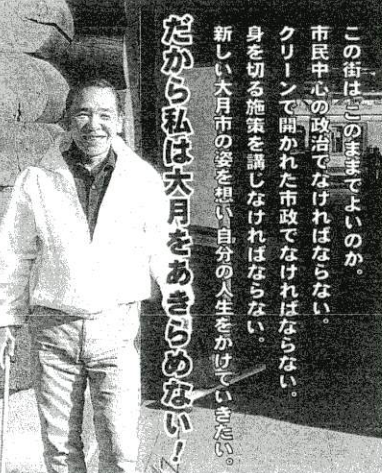 この街は、このままでよいのか。
市民中心の政治でなければならない。
クリーンで開かれた市政でなければならない。
身を切る施策を講じなければならない。
新しい大月市の姿を想い、自分の人生をかけていきたい。
だから私は大月をあきらめない！